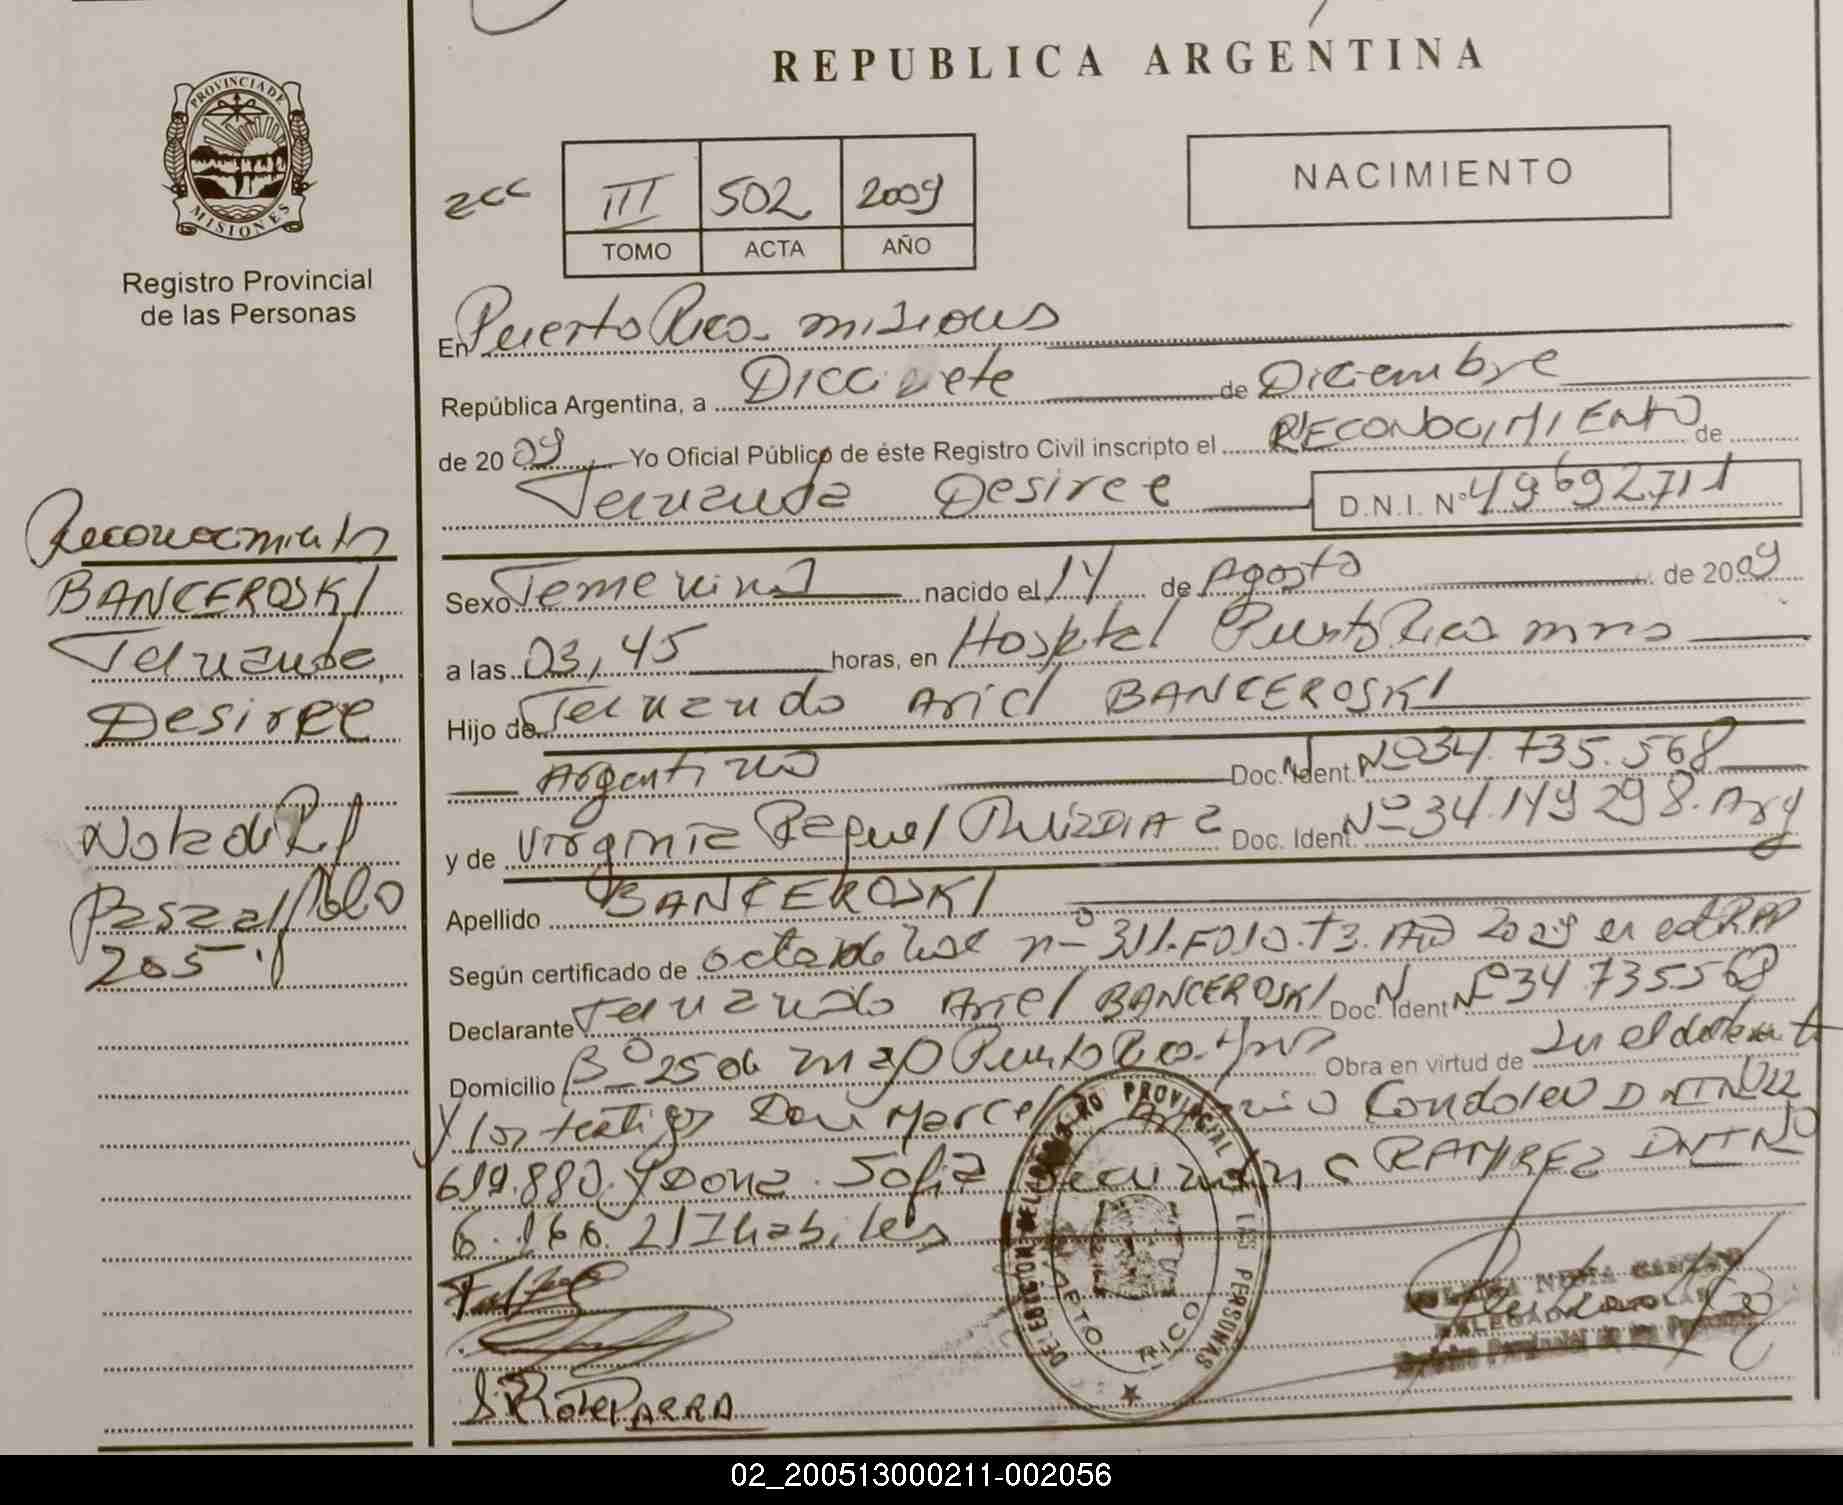 REPUBLICA ARGENTINA
PROVINCIA DE
MISIONES
Registro Provincial
de las Personas
NACIMIENTO
III 502 2009
TOMO ACTA AÑO
En Puerto Rico misiones
República Argentina, a Diecisiete de Diciembre
de 2009 Yo Oficial Público de éste Registro Civil inscripto el RECONOCIMIENTO de
Fernanda Desiree D.N.I. Nº 49692711
Reconocimiento
BANCEROSKI
Fernanda
Desiree
Nota di Ref
Pasa al folio
205
Sexo Femenino nacido el 14 de Agosto de 2009
a las 03,45 horas, en Hospital Puerto Rico mnes
Hijo de Fernando Ariel BANCEROSKI
Argentino Doc. Ident. Nº 34.735.568
y de Virginia Raquel RUIZDIAZ Doc. Ident. Nº 34.149 298. Arg
Apellido BANCEROSKI
Según certificado de acta de nac nº 311. Fº10. T3. Año 2009 en el RPP
Declarante Fernando Ariel BANCEROSKI Doc. Ident Nº 34 735568
Domicilio Bº 25 de mayo Puerto Rico. Obra en virtud de
y los testigos Don Marcel DNI Nº
619.880. y Doña. Sofia RAMIREZ DNI Nº
6.160.217 habiles
DELEGACIÓN DEL REGISTRO PROVINCIAL DE LAS PERSONAS
PTO. RICO
DELEGADA
02_200513000211-002056